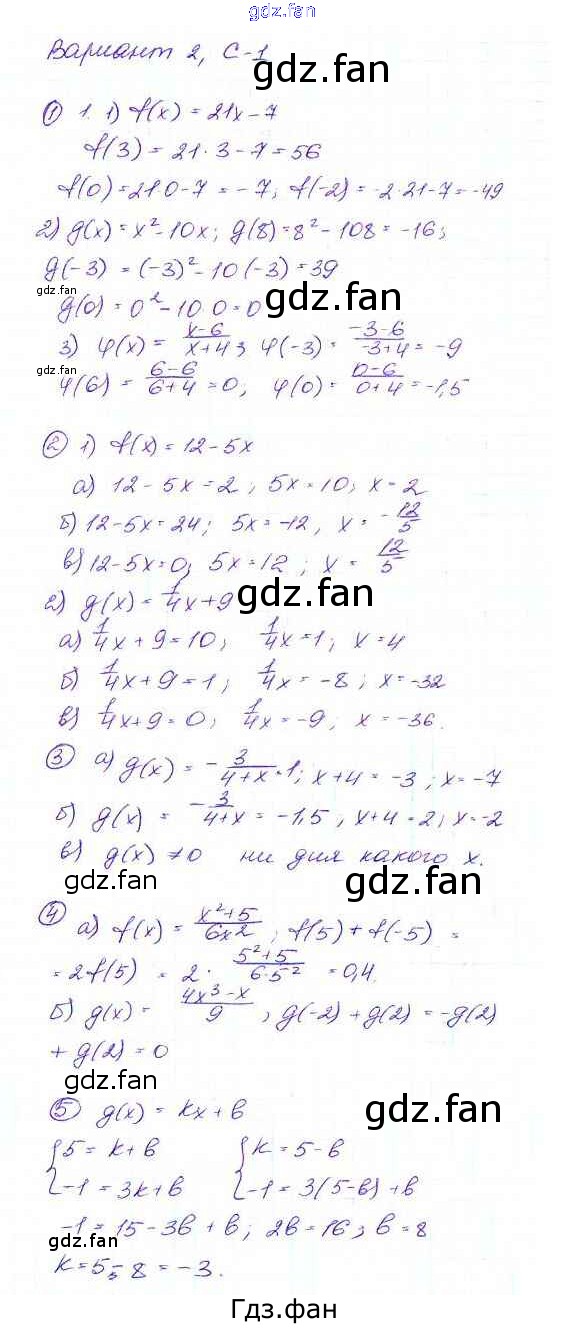 gdz.fan
Вариант 2, С-1
gdz.fan
① 1. 1) f(x) = 21x - 7
f(3) = 21·3 - 7 = 56
f(0) = 21·0 - 7 = -7; f(-2) = -2·21 - 7 = -49
2) g(x) = x² - 10x; g(8) = 8² - 108 = -16;
g(-3) = (-3)² - 10(-3) = 39
gdz.fan
gdz.fan
g(0) = 0² - 10·0 = 0
3) φ(x) = (x-6)/(x+4); φ(-3) = (-3-6)/(-3+4) = -9
gdz.fan
φ(6) = (6-6)/(6+4) = 0, φ(0) = (0-6)/(0+4) = -1,5
② 1) f(x) = 12 - 5x
а) 12 - 5x = 2; 5x = 10; x = 2
б) 12 - 5x = 24; 5x = -12, x = -12/5
в) 12 - 5x = 0; 5x = 12; x = 12/5
gdz.fan
2) g(x) = 1/4x + 9
а) 1/4x + 9 = 10; 1/4x = 1; x = 4
б) 1/4x + 9 = 1; 1/4x = -8; x = -32
в) 1/4x + 9 = 0; 1/4x = -9; x = -36.
③ а) g(x) = -3/(4+x) = 1; x + 4 = -3; x = -7
б) g(x) = -3/(4+x) = -1,5, x + 4 = 2; x = -2
в) g(x) ≠ 0 ни для какого x.
gdz.fan
gdz.fan
④ а) f(x) = (x²+5)/(6x²); f(5) + f(-5) =
= 2f(5) = 2· (5²+5)/(6·5²) = 0,4.
б) g(x) = (4x³-x)/9, g(-2) + g(2) = -g(2)
+ g(2) = 0
gdz.fan
⑤ g(x) = kx + b
gdz.fan
{5 = k + b {k = 5 - b
{-1 = 3k + b {-1 = 3(5-b) + b
-1 = 15 - 3b + b; 2b = 16; b = 8
gdz.fan
k = 5 - 8 = -3.
Гдз.фан